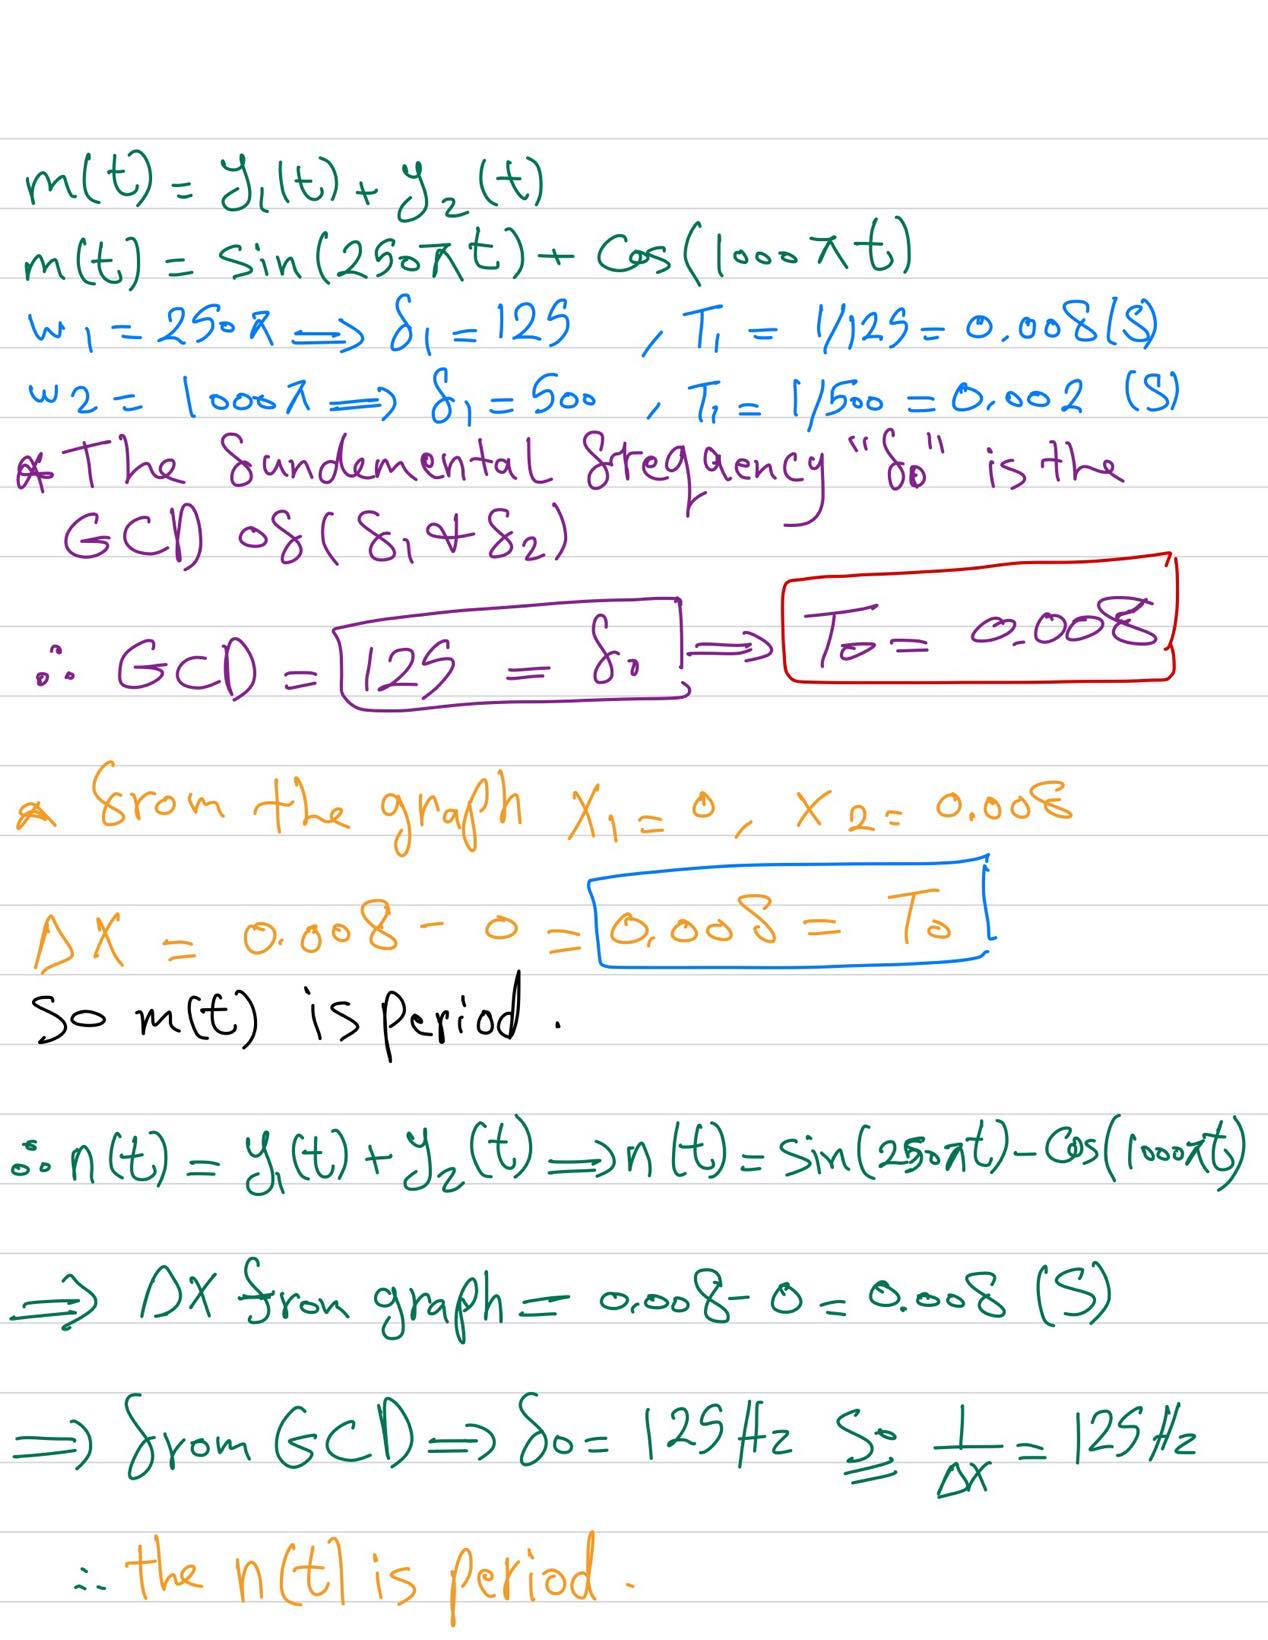 m(t) = y₁(t) + y₂(t)
m(t) = sin(250πt) + Cos(1000πt)
w₁ = 250π ⟹ f₁ = 125 , T₁ = 1/125 = 0.008(S)
w2 = 1000π ⟹ f₁ = 500 , T₁ = 1/500 = 0.002 (S)
* The fundemental freqaency "f₀" is the
GCD of (f₁ & f₂)
∴ GCD = 125 = f₀ ⟹ T₀ = 0.008
* from the graph X₁ = 0, X₂ = 0.008
ΔX = 0.008 - 0 = 0.008 = T₀
So m(t) is period.
∴ n(t) = y₁(t) + y₂(t) ⟹ n(t) = sin(250πt) - Cos(1000πt)
⟹ ΔX fron graph = 0.008 - 0 = 0.008 (S)
⟹ from GCD ⟹ f₀ = 125 Hz So 1/ΔX = 125 Hz
∴ the n(t) is period.